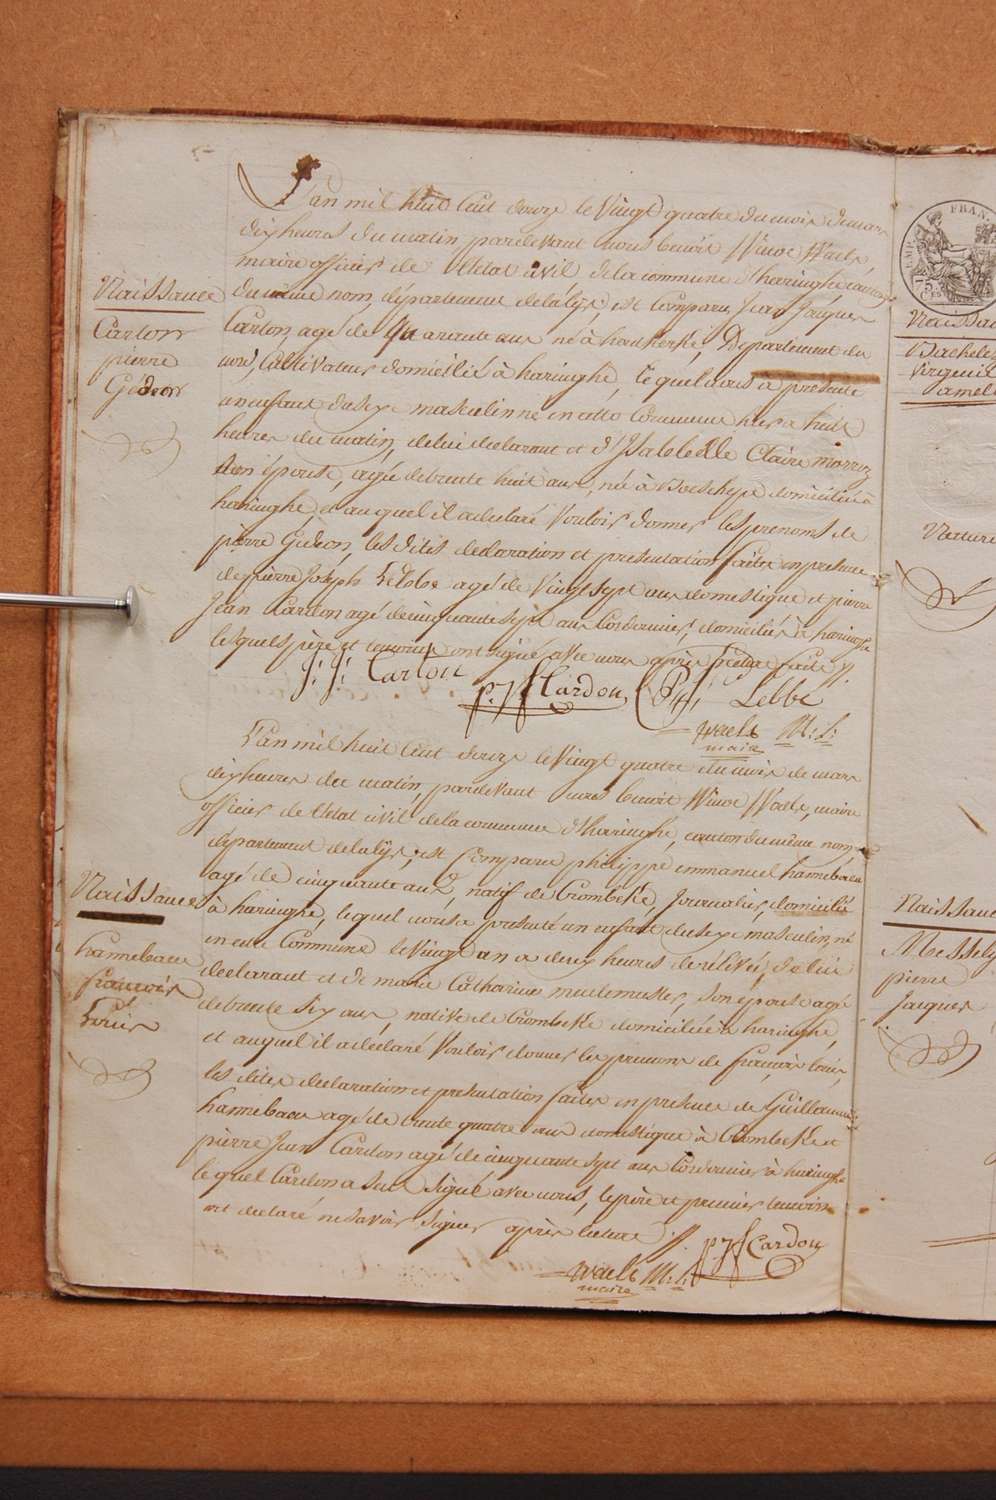 Naissance
Carton
pierre
Gideon
L'an mil huit Cent douze le Vingt quatre du mois de mars
dix heures du matin pardevant nous benoit Winoc Waels,
maire officier de l'Etat civil de la commune d'haringhe, canton
du même nom, département de la lys, est comparu Jean Jacques
Carton, agé de quarante ans né à houtkerke, Departement du
nord, Cultivateur domicilié à haringhe, lequel nous a présenté
un enfant du sexe masculin né en cette Commune hier a huit
heures du matin, de lui declarant et d'Isabelle Claire
son épouse, agée de trente huit ans, née à Boeschepe domiciliée à
haringhe et auquel il a declaré Vouloir donner les prenoms de
pierre Gideon, les dites declaration et presentation faites en presence
de pierre Joseph Lebbe agé de Vingt sept ans domestique et pierre
Jean Cardon agé de cinquante sept ans Cordonnier, domiciliés à haringhe
lesquels père et temoins ont signé avec nous après lecture faite
J: J: Carton
p: J Cardon
P: J: Lebbe
Waels M: L:
maire
Naissance
hannebauw
francois
Louis
L'an mil huit Cent douze le Vingt quatre du mois de mars
dix heures du matin, pardevant nous benoit Winoc Waels, maire
officier de l'Etat civil de la commune d'haringhe, canton du même nom,
département de la lys, est Comparu philippe emmanuel hannebauw
agé de cinquante ans, natif de Crombeke, Journalier, domicilié
à haringhe, lequel nous a presenté un enfant du sexe masculin, né
en cette Commune le Vingt un a deux heures de rélévée, de lui
declarant et de marie Catharine meulemeester, son épouse agée
de trente Six ans, native de Crombeke domiciliée à haringhe,
et auquel il a declaré Vouloir donner les prenoms de françois louis,
les dites declaration et presentation faites en presence de Guillaume
hannebauw agé de trente quatre ans domestique à Crombeke et
pierre Jean Cardon agé de cinquante sept ans Cordonnier à haringhe
lequel Cardon a seul Signé avec nous, le père et premier temoin
ont declaré ne savoir Signer après lecture
p J Cardon
Waels M: L:
maire
FRAN
75
Virgenie
Naissance
pierre
Jacques